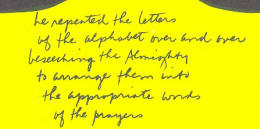 he repeated the letters
of the alphabet over and over
beseeching the Almighty
to arrange them into
the appropriate words
of the prayers